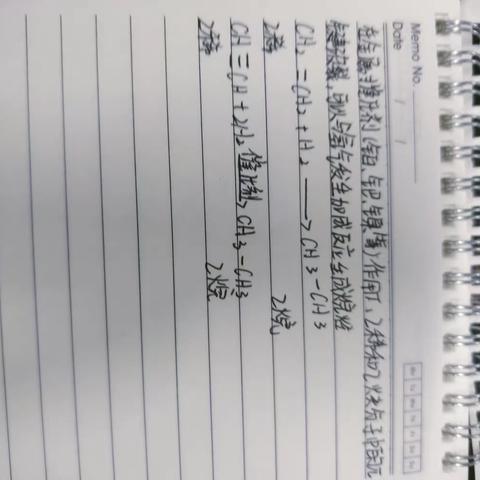 Memo No.
Date / /
在金属催化剂(铂、钯、镍等)作用下,乙烯和乙炔分子中的沉
键断裂,可以与氢气发生加成反应生成烷烃
CH₂=CH₂+H₂→CH3-CH3
乙烯 乙烷
CH≡CH+2H₂催化剂>CH3-CH3
乙烷